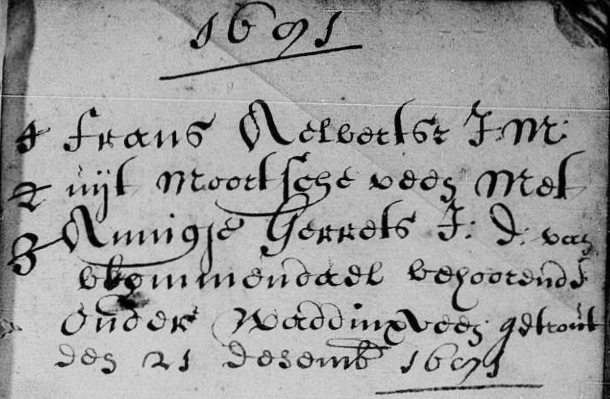 1691
4 frans Aelbertsz J: M:
2 uijt Moortsche veen Met
3 Annigje Gerrets J: D: van
bloemmendael behoorende
onder Waddinxveen getrout
den 21 desemb 1691